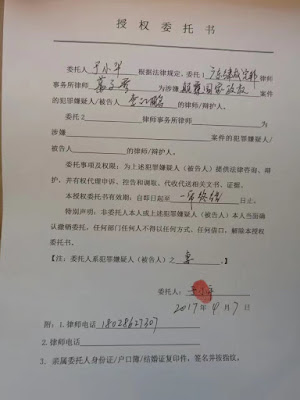 授 权 委 托 书
委托人 于小华 根据法律规定,委托1 律师
事务所律师 为涉嫌 颠覆国家政权 案件
的犯罪嫌疑人/被告人 的律师/辩护人。
委托2 律师事务所律师 为
涉嫌 案件的犯罪嫌疑人/
被告人 的律师/辩护人。
委托事项及权限:为上述犯罪嫌疑人(被告人)提供法律咨询、辩
护,并有权代理申诉、控告和调取、代收代送相关文书、证据。
本授权委托书有效期:自即日起至 一审终结 日止。
特别声明:非委托人本人或上述犯罪嫌疑人(被告人)本人当面确
认撤销委托,任何部门任何人不得以任何方式、任何借口,解除本授权
委托书。
【注:委托人系犯罪嫌疑人(被告人)之 妻 。】
委托人:
2017年4月7日
附:1.律师电话 18028627307
2.律师电话
3.亲属委托人身份证/户口簿/结婚证复印件,签名并按指纹。